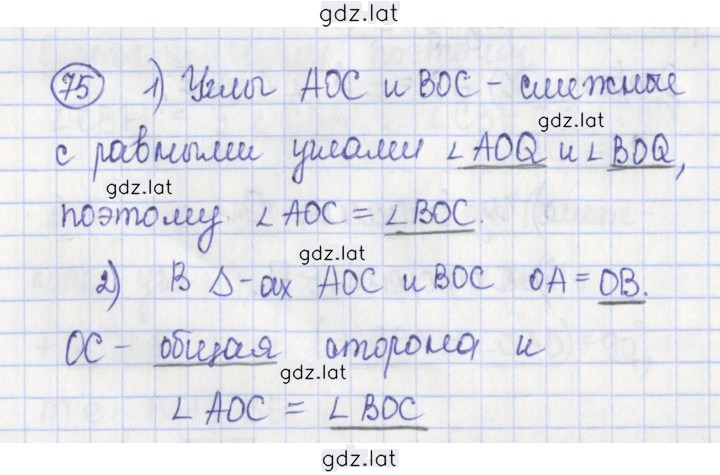 gdz.lat
75 1) Углы AOC и BOC - смежные
gdz.lat
с равными углами ∠AOQ и ∠BOQ,
gdz.lat
поэтому ∠AOC = ∠BOC.
gdz.lat
2) В Δ-ах AOC и BOC OA = OB.
OC - общая сторона и
gdz.lat
∠AOC = ∠BOC
gdz.lat